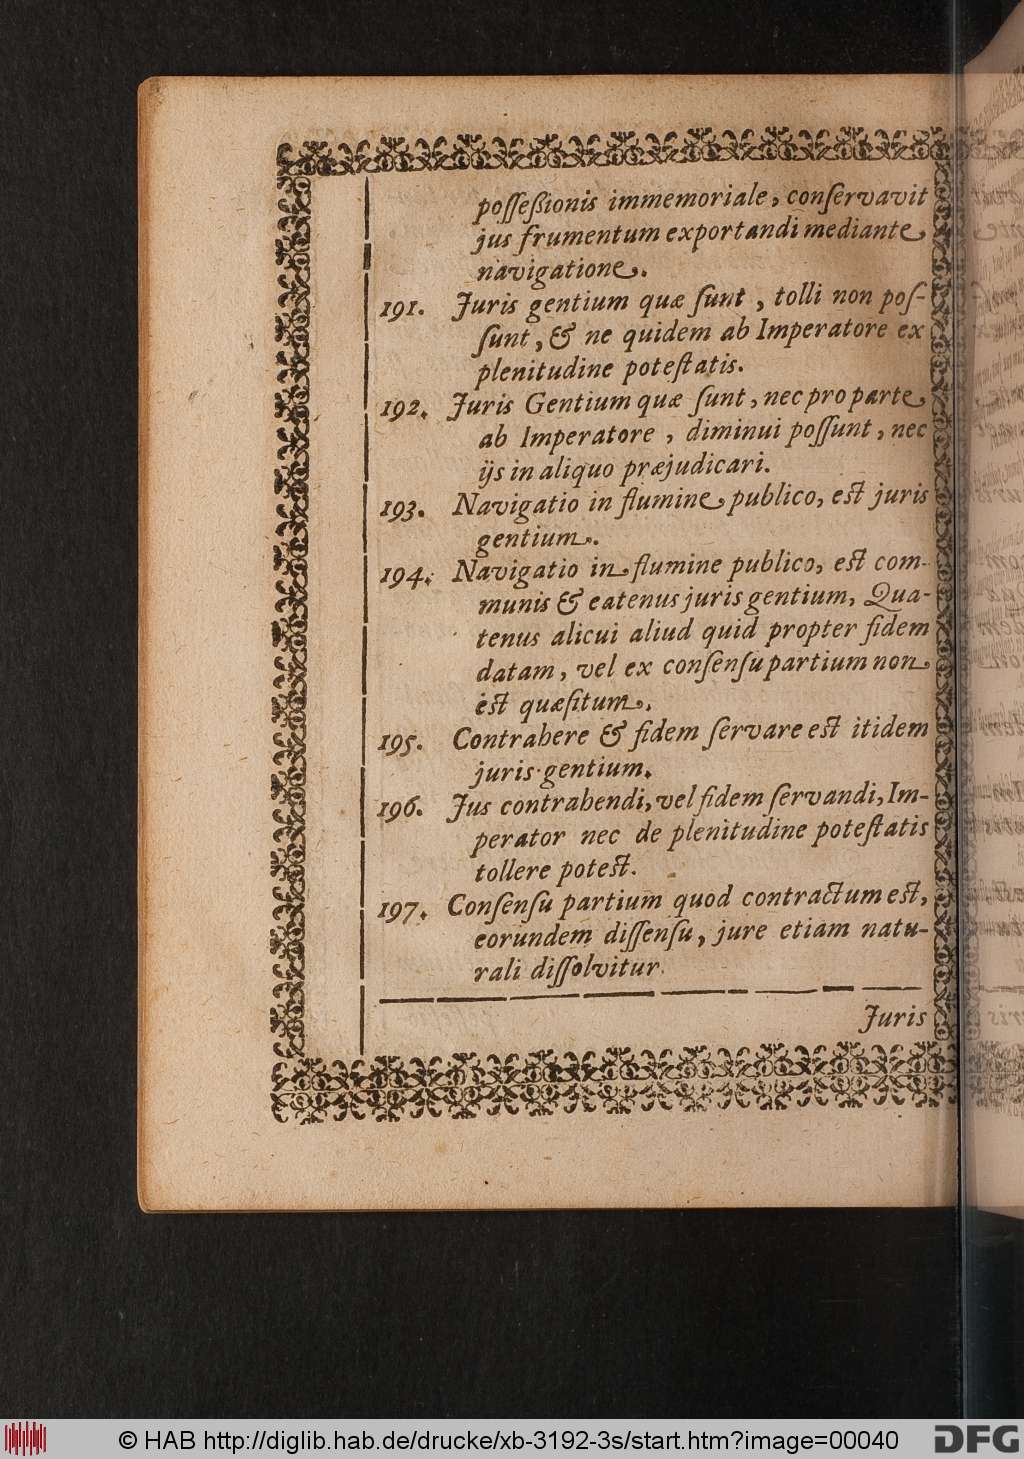 posſeßionis immemoriale, conſervavit
jus frumentum exportandi mediante,
navigatione.
191. Juris gentium quæ ſunt, tolli non poſ-
ſunt, & ne quidem ab Imperatore ex
plenitudine poteſtatis.
192. Juris Gentium quæ ſunt, nec pro parte,
ab Imperatore, diminui poſſunt, nec
ijs in aliquo præjudicari.
193. Navigatio in flumine publico, eſt juris
gentium.
194. Navigatio in flumine publico, eſt com-
munis & eatenus juris gentium, Qua-
tenus alicui aliud quid propter fidem
datam, vel ex conſenſu partium non
eſt quæſitum.
195. Contrahere & fidem ſervare eſt itidem
juris gentium.
196. Jus contrahendi, vel fidem ſervandi, Im-
perator nec de plenitudine poteſtatis
tollere poteſt.
197. Conſenſu partium quod contractum eſt,
eorundem diſſenſu, jure etiam natu-
rali diſſolvitur.
Juris
© HAB http://diglib.hab.de/drucke/xb-3192-3s/start.htm?image=00040
DFG